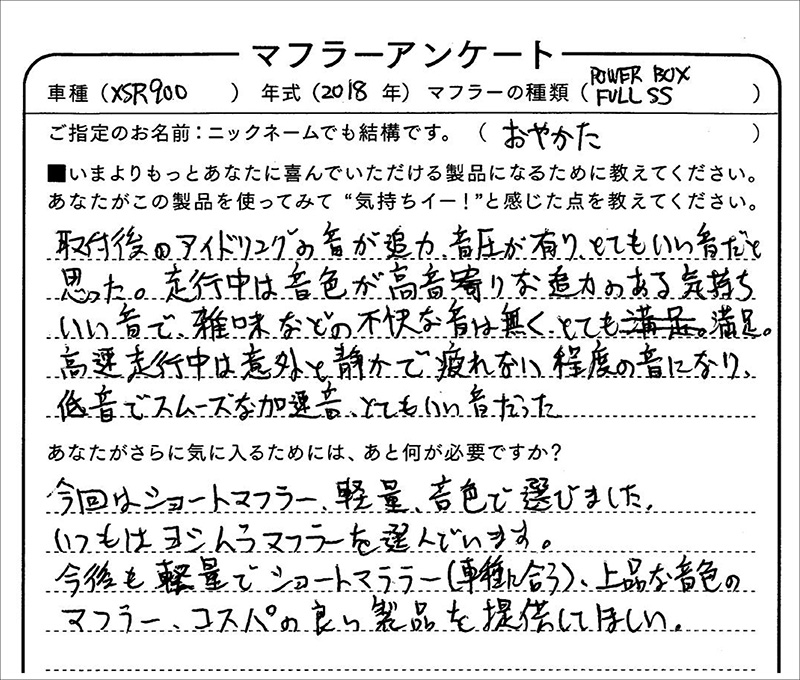 マフラーアンケート
車種（XSR900　）　年式（2018　年）　マフラーの種類（POWER BOX FULL SS　）
ご指定のお名前：ニックネームでも結構です。（おやかた　）
■いまよりもっとあなたに喜んでいただける製品になるために教えてください。
あなたがこの製品を使ってみて“気持ちイー！”と感じた点を教えてください。
取付後のアイドリングの音が迫力、音圧が有り、とてもいい音だと
思った。走行中は音色が高音寄りな迫力のある気持ち
いい音で、雑味などの不快な音は無く、とても満足。満足。
高速走行中は意外と静かで疲れない程度の音になり、
低音でスムーズな加速音、とてもいい音だった
あなたがさらに気に入るためには、あと何が必要ですか？
今回はショートマフラー、軽量、音色で選びました。
いつもはヨシムラマフラーを選んでいます。
今後も軽量でショートマララー（車種に合う）、上品な音色の
マフラー、コスパの良い製品を提供してほしい。